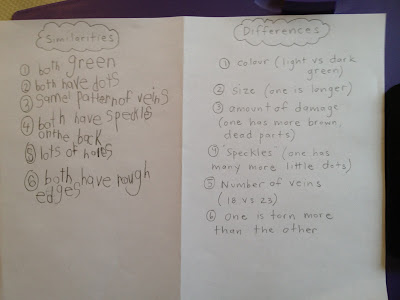 Similarities
① both green
② both have dots
③ same pattern of veins
④ both have speckles
on the back
⑤ lots of holes
⑥ both have rough
edges
Differences
① colour (light vs dark
green)
② Size (one is longer)
③ amount of damage
(one has more brown,
dead parts)
④ "Speckles" (one has
many more little dots)
⑤ Number of veins
(18 vs 23)
⑥ One is torn more
than the other